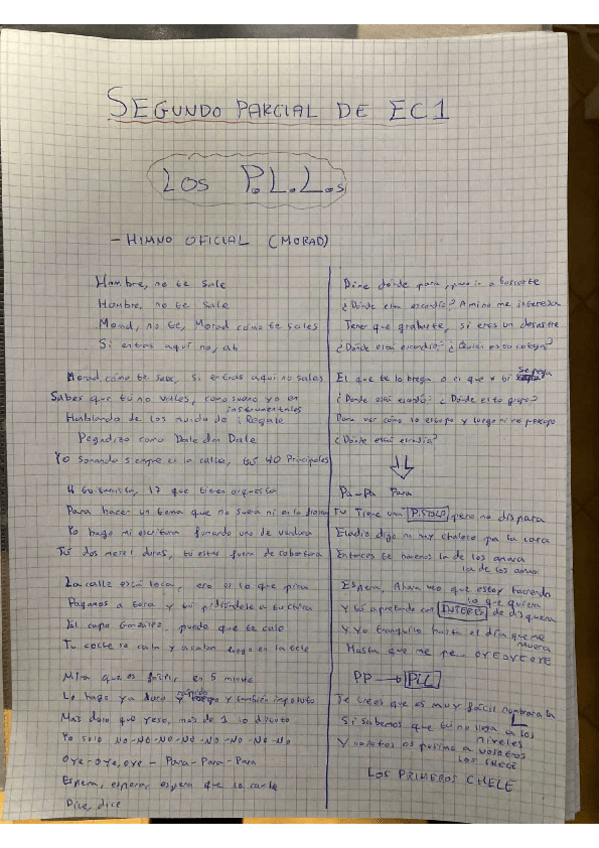 SEGUNDO PARCIAL DE EC1
LOS P.L.L.s
- HIMNO OFICIAL (MORAD)
Hombre, no te sale
Hombre, no te sale
Morad, no te, Morad cómo te sales
Si entras aquí no, ah
Morad cómo te sale, si entras aquí no sales
Sabes que tú no vales, como sueno yo en
instrumentales
Hablando de los mundo de Regale
Pegadizo como Dale don Dale
Yo sonando siempre en la calle, tú 40 Principales
17 que tienes orquesta
Para hacer un tema que no suena ni en la
Yo hago mi escritura fumando uno de verdura
Tú dos meses duras, tú estás fuera de cobertura
La calle está loca, eso es lo que pisa
Pagamos a toca y tú pidiéndole a tu chica
El capo González, puede que te cale
Tu coche lo calo y acabas luego en la tele
Mira que es fácil, en 5 minutos
Lo hago ya duro y también impoluto
Más duro que yeso, más de 1 lo disputo
Yo solo, NO-NO-NO-NO-NO-NO-NO-NO
OYE-OYE, OYE - Para-Para-Para
Espera, espera, espera que lo cante
Dice, dice
Dime dónde para, para ir a buscarte
¿Dónde está escondío? A mí no me interesa
Tener que grabarte, si eres un desastre
¿Dónde está escondío? ¿Quién es tu colega?
El que te lo brega o el que a ti se pega
¿Dónde está escondío? ¿Dónde está tu grupo?
Para ver cómo lo escupo y luego ni me preocupo
¿Dónde está escondío?
Pa-Pa Para
Tú tiene un PISTOLO pero no dispara
Eladio digo ni muy chaleco pa la cara
Entonces te haremos la de los
la de los
Espera, Ahora veo que estoy haciendo
lo que quiera
Y tú apretando con INTERÉS de disquera
Y yo tranquilo hasta el día que me
muera
Hasta que me pe... OYE OYE OYE
PP → PLL
Te crees que es muy fácil
Si sabemos que tú no llega a los
niveles
Y nosotros os a vosotros
los CHELE
LOS PRIMEROS CHELE